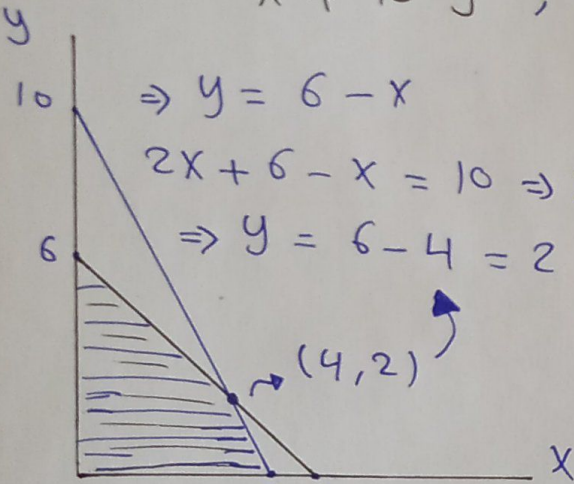 y
10 ⇒ y = 6 - x
2x + 6 - x = 10 ⇒
6 ⇒ y = 6 - 4 = 2
(4,2)
x